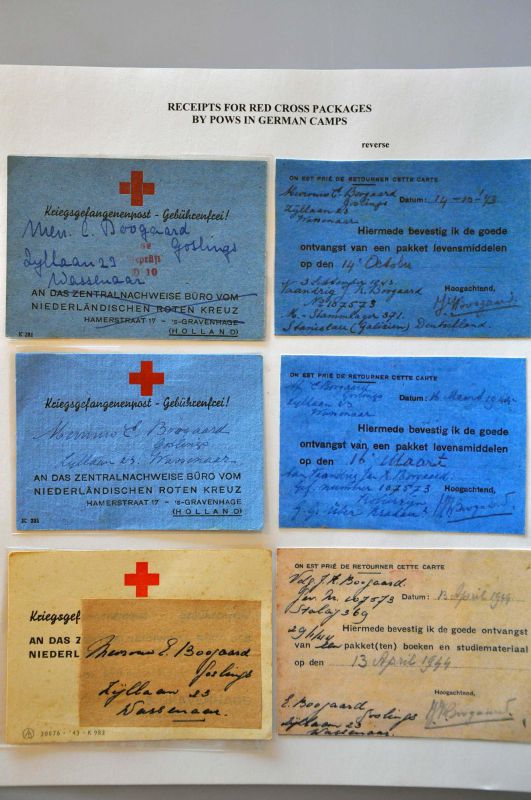 RECEIPTS FOR RED CROSS PACKAGES
BY POWS IN GERMAN CAMPS
reverse
Kriegsgefangenenpost - Gebührenfrei!
Mevr. E. Boogaard
Goslings
Zijllaan 23
Wassenaar
AN DAS ZENTRALNACHWEISE BÜRO VOM
NIEDERLÄNDISCHEN ROTEN KREUZ
HAMERSTRAAT 17 - 's-GRAVENHAGE
(HOLLAND)
K 281
ON EST PRIÉ DE RETOURNER CETTE CARTE
Mevrouw E. Boogaard
Goslings
Zijllaan 23
Wassenaar
Datum: 14-10-'43
Hiermede bevestig ik de goede
ontvangst van een pakket levensmiddelen
op den 14 October
3 September 1943
Vaandrig Boogaard
No 107573
Hoogachtend,
M.-Stammlager 371
Stanislau (Galizien) Deutschland.
Kriegsgefangenenpost - Gebührenfrei!
Mevrouw E Boogaard
Goslings
Zijllaan 23, Wassenaar
AN DAS ZENTRALNACHWEISE BÜRO VOM
NIEDERLÄNDISCHEN ROTEN KREUZ
HAMERSTRAAT 17 - 's-GRAVENHAGE
(HOLLAND)
K 281
ON EST PRIÉ DE RETOURNER CETTE CARTE
E Boogaard
Goslings
Zijllaan 23
Wassenaar
Datum: 16 Maart 1944
Hiermede bevestig ik de goede
ontvangst van een pakket levensmiddelen
op den 16 Maart
Vaandrig Boogaard
nummer 107573
Hoogachtend,
Kriegsgef
AN DAS Z
NIEDERL
Mevrouw E. Boogaard
Goslings
Zijllaan 23
Wassenaar.
30076 - '43 - K 983
ON EST PRIÉ DE RETOURNER CETTE CARTE
Vdg. J.H. Boogaard.
Gev. Nr. 107573
Stalag 369
Datum: 13 April 1944
Hiermede bevestig ik de goede ontvangst
van pakket(ten) boeken en studiemateriaal
op den 13 April 1944
Hoogachtend,
E. Boogaard
Goslings
Zijllaan 23
Wassenaar